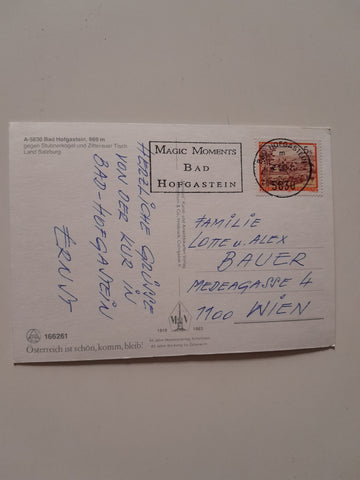 A-5630 Bad Hofgastein, 869 m
gegen Stubnerkogel und Zitterauer Tisch
Land Salzburg
MAGIC MOMENTS
BAD
HOFGASTEIN
BAD HOFGASTEIN
5630
HERZLICHE GRÜSSE
VON DER KUR IN
BAD-HOFGASTEIN
ERNNY
FAMILIE
LOTE u. ALEX
BAUER
MEDEAGASSE 4
1100 WIEN
166261
Österreich ist schön, komm, bleib!